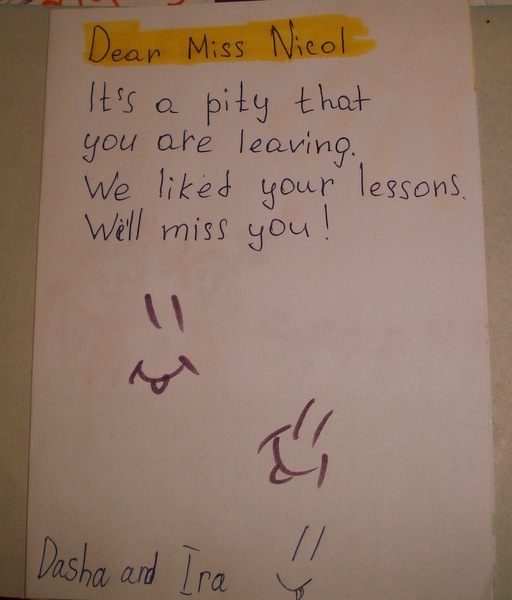 Dear Miss Nicol
It's a pity that
you are leaving.
We liked your lessons.
We'll miss you!
Dasha and Ira